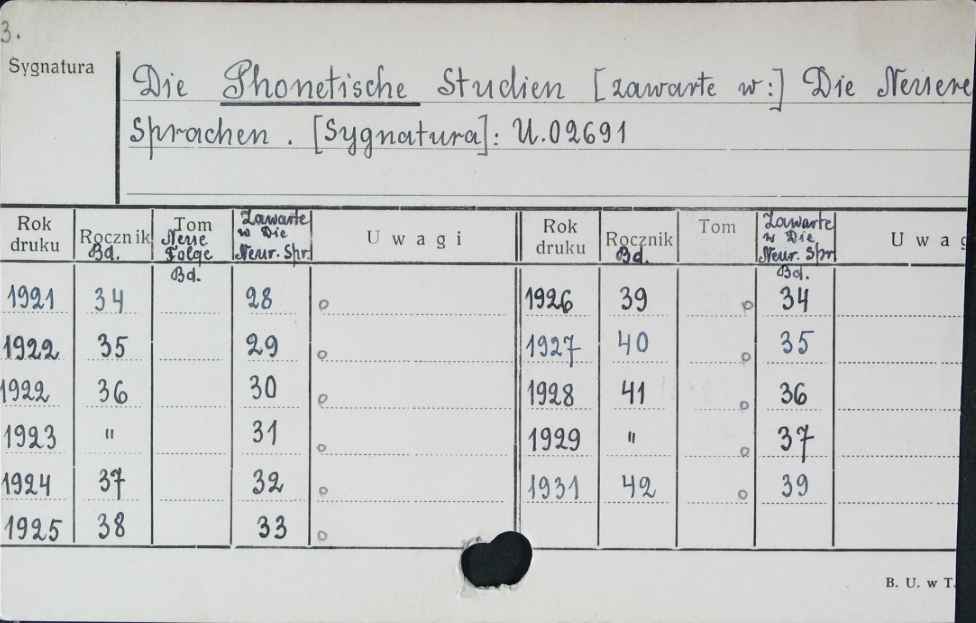 3.
Sygnatura
Die Phonetische Studien [zawarte w:] Die Neuere
Sprachen. [Sygnatura]: U.02691
Rok druku Rocznik Bd. Tom Neue Folge Bd. Zawarte w Die Neur. Spr. Uwagi Rok druku Rocznik Bd. Tom Zawarte w Die Neur. Spr Bd. Uwag
1921 34 28 o 1926 39 o 34
1922 35 29 o 1927 40 o 35
1922 36 30 o 1928 41 o 36
1923 " 31 o 1929 " o 37
1924 37 32 o 1931 42 o 39
1925 38 33 o
B. U. w T.